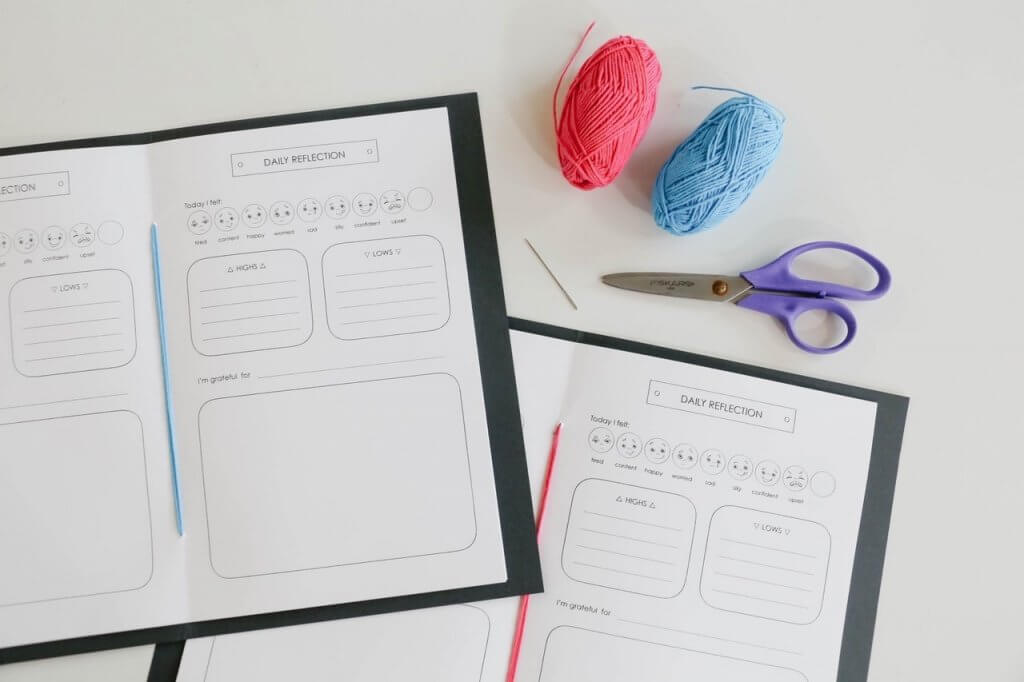 LECTION
silly confident upset
▽ LOWS ▽
DAILY REFLECTION
Today I felt:
tired content happy worried sad silly confident upset
△ HIGHS △
▽ LOWS ▽
I'm grateful for
FISKARS
DAILY REFLECTION
Today I felt:
tired content happy worried sad silly confident upset
△ HIGHS △
▽ LOWS ▽
I'm grateful for